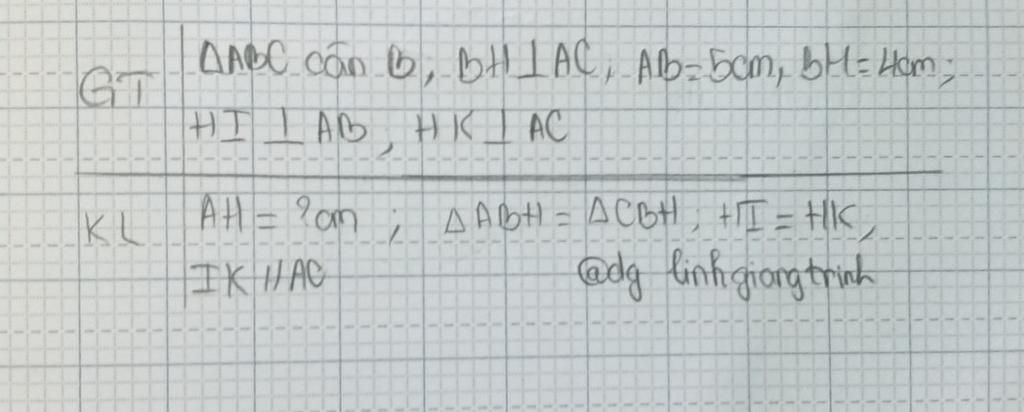 GT
ΔABC cân B, BH⊥AC, AB=5cm, BH=4cm;
HI ⊥ AB, HK ⊥ AC
KL
AH = ?cm ; ΔABH = ΔCBH; HI = HK,
IK // AC @dg linhgiangtrinh